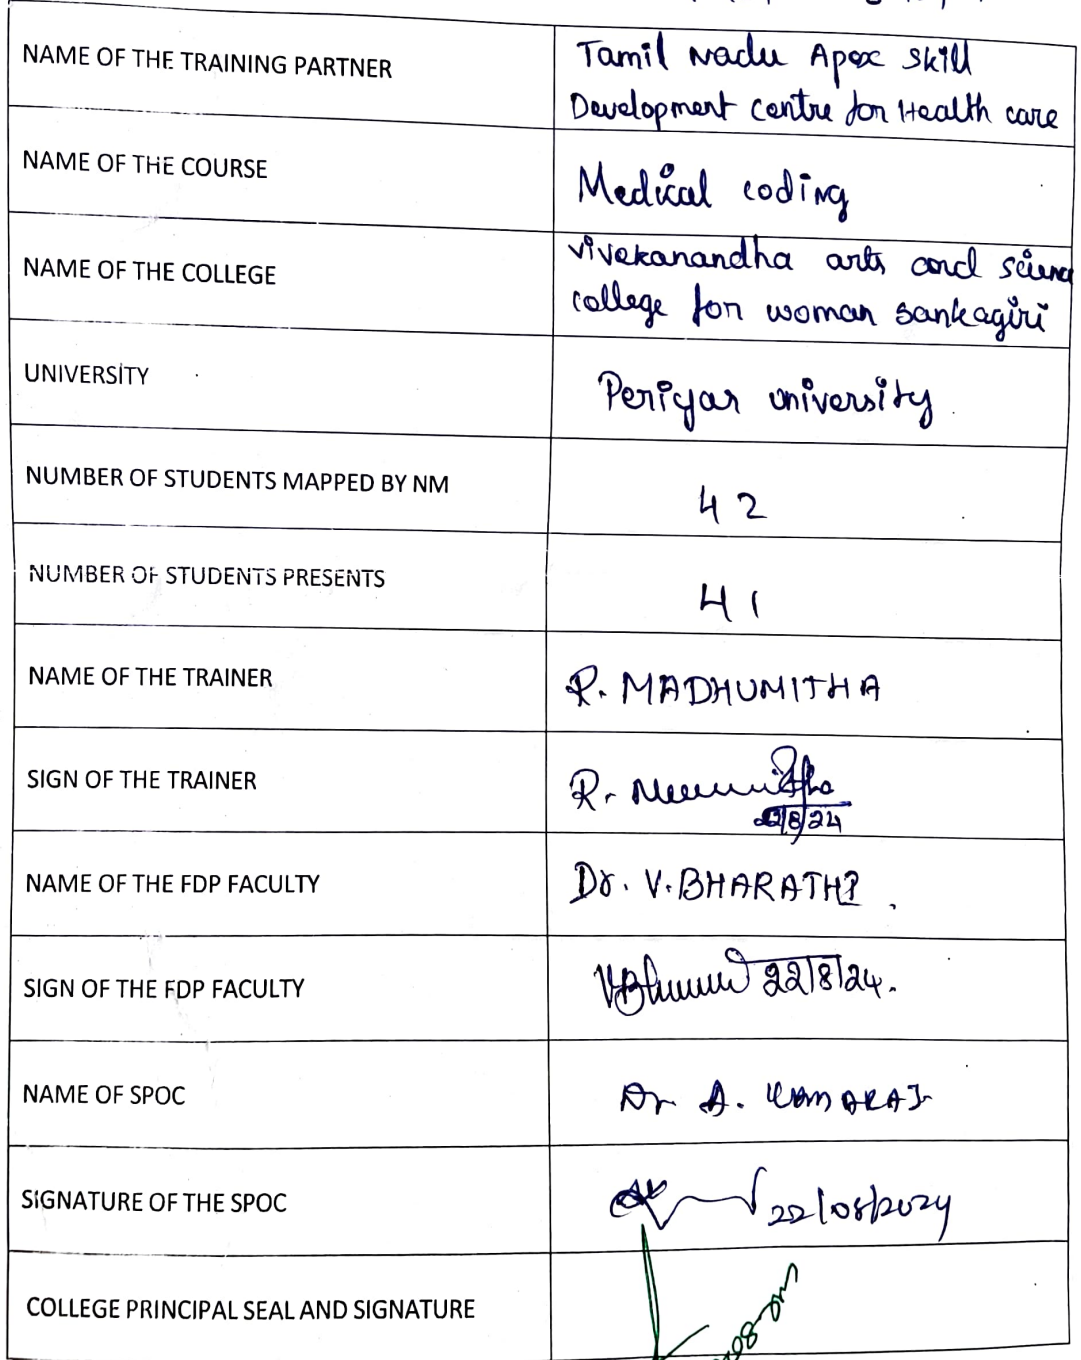 NAME OF THE TRAINING PARTNER
Tamil Nadu Apex Skill
Development Centre for Health care
NAME OF THE COURSE
Medical coding
NAME OF THE COLLEGE
vivekanandha arts and science
college for woman sankagiri
UNIVERSITY
Periyar university
NUMBER OF STUDENTS MAPPED BY NM
42
NUMBER OF STUDENTS PRESENTS
41
NAME OF THE TRAINER
R. MADHUMITHA
SIGN OF THE TRAINER
R.
22/8/24
NAME OF THE FDP FACULTY
Dr. V. BHARATHI
SIGN OF THE FDP FACULTY
22/8/24.
NAME OF SPOC
Dr A. KAMARAJ
SIGNATURE OF THE SPOC
22/08/2024
COLLEGE PRINCIPAL SEAL AND SIGNATURE